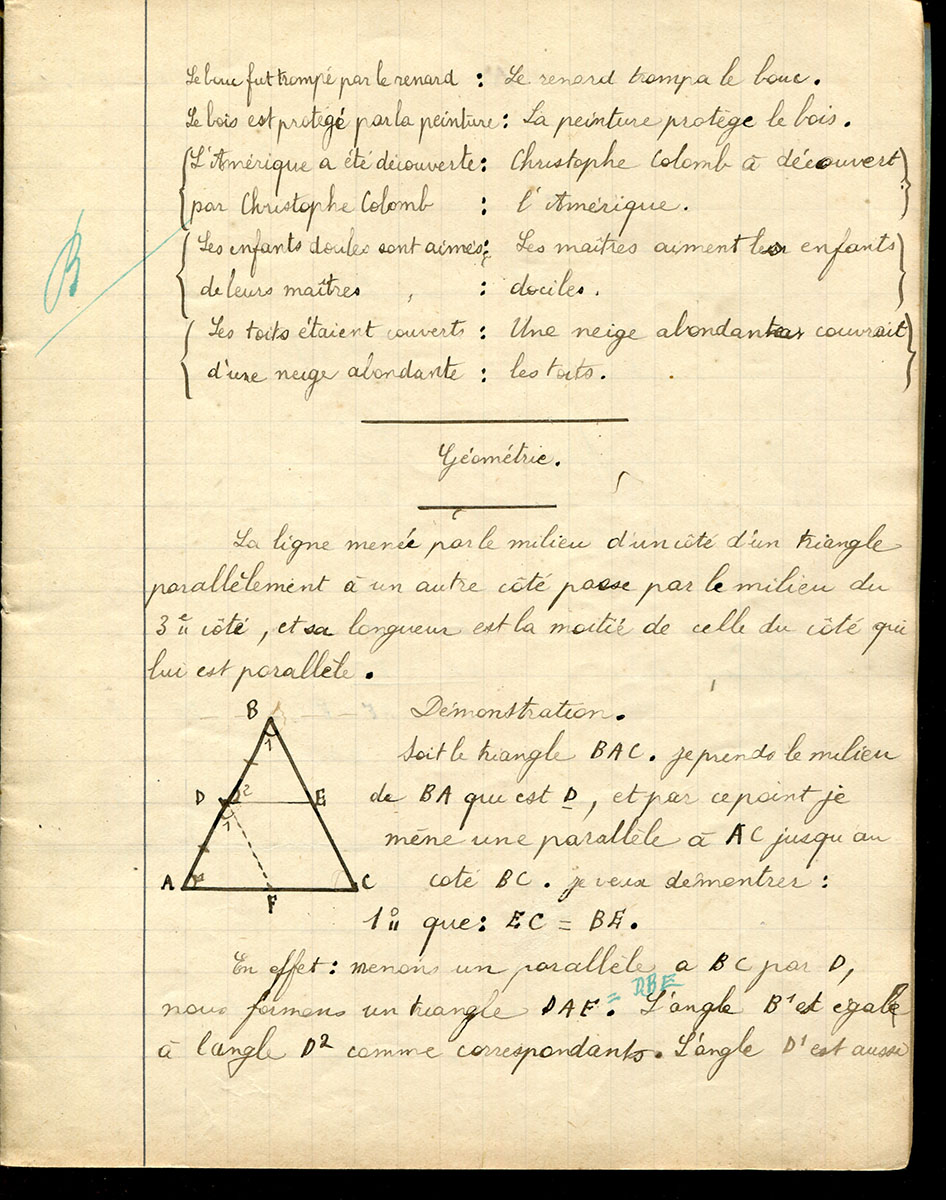 Le bouc fut trompé par le renard : Le renard trompa le bouc.
Le bois est protégé par la peinture : La peinture protège le bois.
L'Amérique a été découverte : Christophe Colomb à découvert
par Christophe Colomb : l'Amérique.
Les enfants doules sont aimés : Les maîtres aiment les enfants
de leurs maîtres : dociles.
Les toits étaient couverts : Une neige abondante couvrait
d'une neige abondante : les toits.
B
Géométrie.
La ligne menée par le milieu d'un côté d'un triangle
parallèlement à un autre côté passe par le milieu du
3e côté, et sa longueur est la moitié de celle du côté qui
lui est parallèle.
B
1
D
2
E
1
A
C
F
Démonstration.
Soit le triangle BAC. je prends le milieu
de BA qui est D, et par ce point je
mène une parallèle à AC jusqu'au
coté BC. je veux démontrer :
1º que : EC = BE.
En effet : menons un parallèle a BC par D,
nous formons un triangle DAF = DBE. L'angle B1 est égale
à l'angle D2 comme correspondants. L'angle D1 est aussi